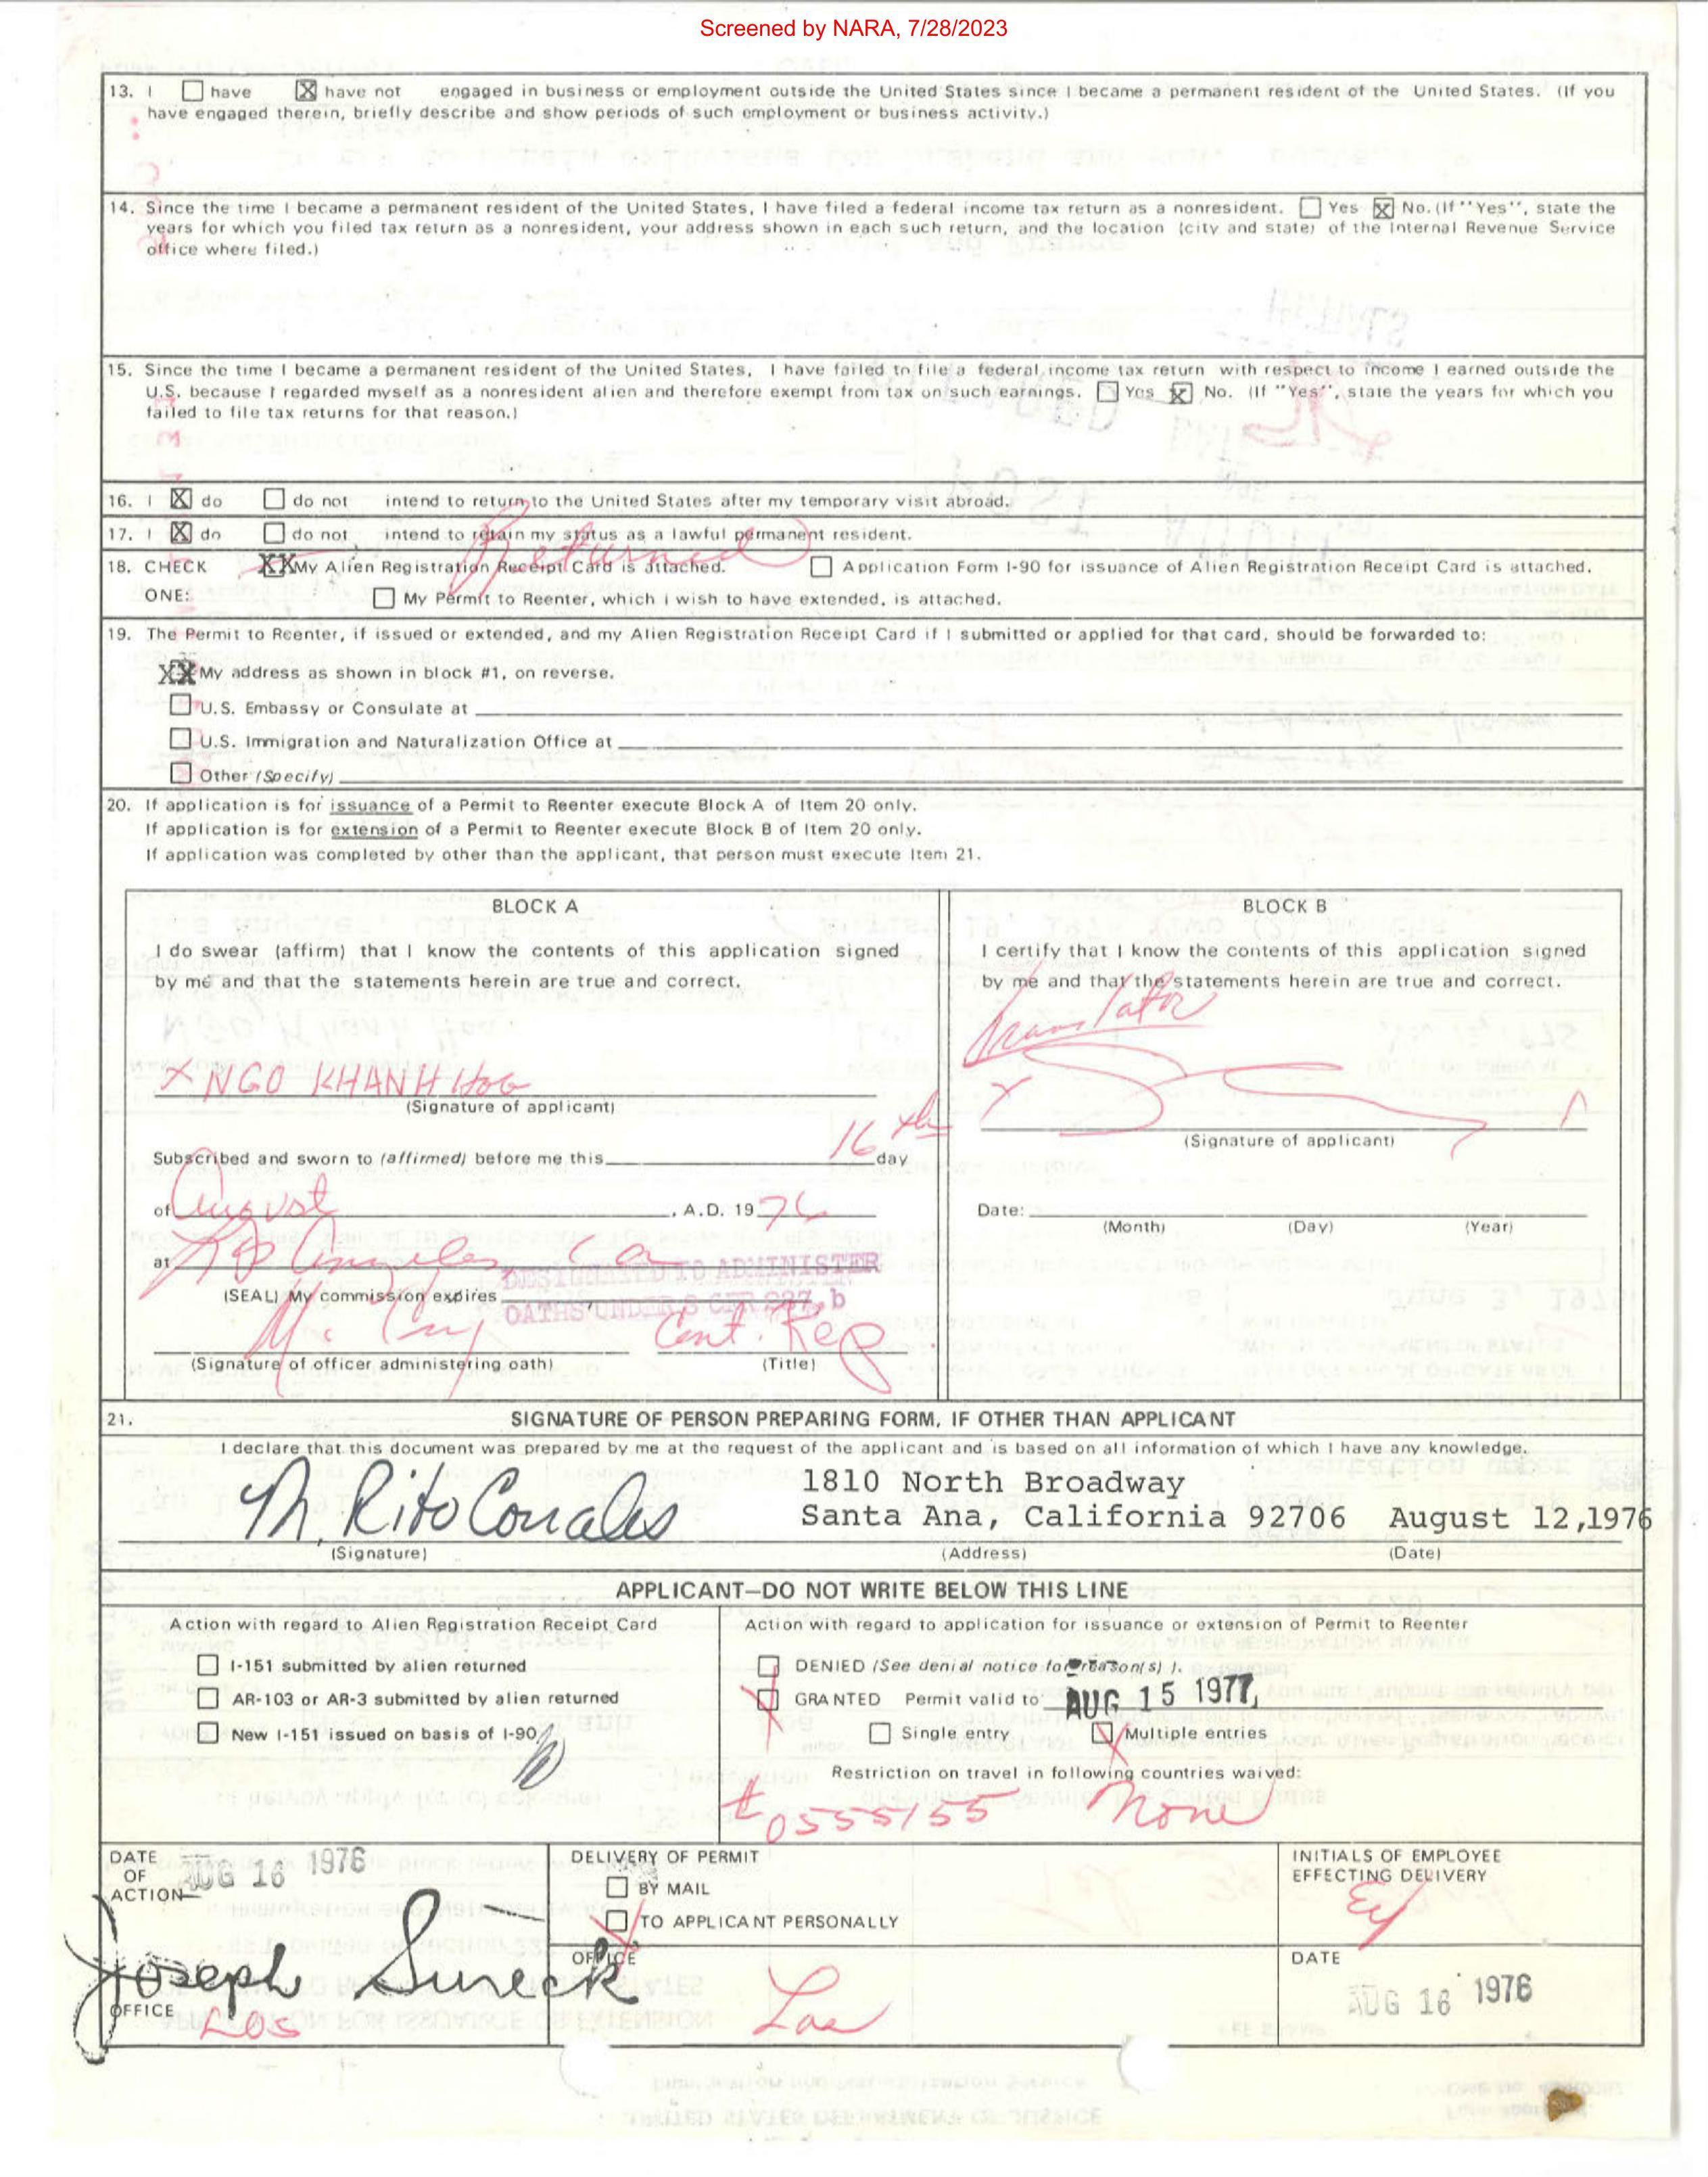 Screened by NARA, 7/28/2023
13. I ☐ have ☒ have not engaged in business or employment outside the United States since I became a permanent resident of the United States. (If you
have engaged therein, briefly describe and show periods of such employment or business activity.)
14. Since the time I became a permanent resident of the United States, I have filed a federal income tax return as a nonresident. ☐ Yes ☒ No. (If "Yes", state the
years for which you filed tax return as a nonresident, your address shown in each such return, and the location (city and state) of the Internal Revenue Service
office where filed.)
15. Since the time I became a permanent resident of the United States, I have failed to file a federal income tax return with respect to income I earned outside the
U.S. because I regarded myself as a nonresident alien and therefore exempt from tax on such earnings. ☐ Yes ☒ No. (If "Yes", state the years for which you
failed to file tax returns for that reason.)
16. I ☒ do ☐ do not intend to return to the United States after my temporary visit abroad.
17. I ☒ do ☐ do not intend to retain my status as a lawful permanent resident.
Returned
18. CHECK XX My Alien Registration Receipt Card is attached. ☐ Application Form I-90 for issuance of Alien Registration Receipt Card is attached.
ONE: ☐ My Permit to Reenter, which I wish to have extended, is attached.
19. The Permit to Reenter, if issued or extended, and my Alien Registration Receipt Card if I submitted or applied for that card, should be forwarded to:
XX My address as shown in block #1, on reverse.
☐ U.S. Embassy or Consulate at
☐ U.S. Immigration and Naturalization Office at
☐ Other (Specify)
20. If application is for issuance of a Permit to Reenter execute Block A of Item 20 only.
If application is for extension of a Permit to Reenter execute Block B of Item 20 only.
If application was completed by other than the applicant, that person must execute Item 21.
BLOCK A
I do swear (affirm) that I know the contents of this application signed
by me and that the statements herein are true and correct.
X NGO KHANH HOG
(Signature of applicant)
Subscribed and sworn to (affirmed) before me this 16th day
of August, A.D. 1976
at Los Angeles Ca
DESIGNATED TO ADMINISTER
(SEAL) My commission expires
OATHS UNDER 8 CFR 287, b
Cont. Rep
(Signature of officer administering oath) (Title)
BLOCK B
I certify that I know the contents of this application signed
by me and that the statements herein are true and correct.
Translator
X
(Signature of applicant)
Date:
(Month) (Day) (Year)
21. SIGNATURE OF PERSON PREPARING FORM, IF OTHER THAN APPLICANT
I declare that this document was prepared by me at the request of the applicant and is based on all information of which I have any knowledge.
1810 North Broadway
M. Rito Corrales Santa Ana, California 92706 August 12,1976
(Signature) (Address) (Date)
APPLICANT—DO NOT WRITE BELOW THIS LINE
Action with regard to Alien Registration Receipt Card
☐ I-151 submitted by alien returned
☐ AR-103 or AR-3 submitted by alien returned
☐ New I-151 issued on basis of I-90
Action with regard to application for issuance or extension of Permit to Reenter
☐ DENIED (See denial notice for reason(s) ).
☒ GRANTED Permit valid to AUG 15 1977,
☐ Single entry ☒ Multiple entries
Restriction on travel in following countries waived:
0555155 None
DATE OF ACTION AUG 16 1976
Joseph Sureck
OFFICE LOS
DELIVERY OF PERMIT
☐ BY MAIL
☒ TO APPLICANT PERSONALLY
OFFICE
Los
INITIALS OF EMPLOYEE
EFFECTING DELIVERY
DATE
AUG 16 1976